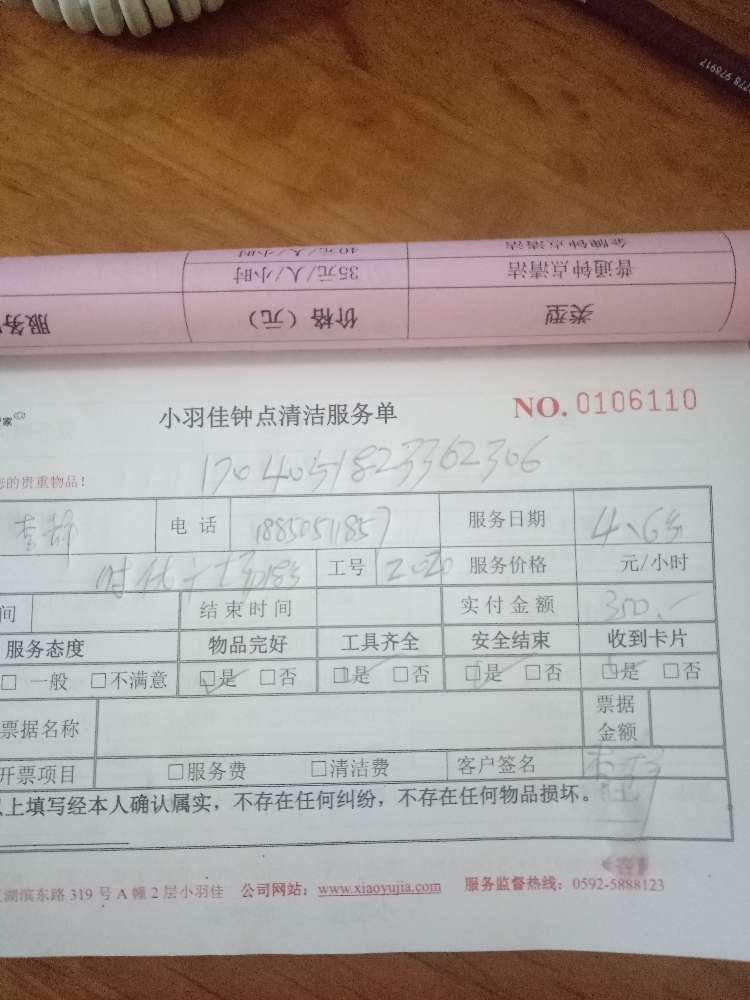 778 978917
金牌钟点清洁 40元/人/小时
普通钟点清洁 35元/人/小时
类型 价格（元） 服务
家
小羽佳钟点清洁服务单 NO. 0106110
您的贵重物品!
电话 18850511857 服务日期
工号 2020 服务价格 元/小时
间 结束时间 实付金额 350.-
服务态度 物品完好 工具齐全 安全结束 收到卡片
□ 一般 □不满意 □是 □否 □是 □否 □是 □否 □是 □否
票据名称 票据金额
开票项目 □服务费 □清洁费 客户签名
以上填写经本人确认属实，不存在任何纠纷，不存在任何物品损坏。
湖滨东路 319 号 A 幢 2 层小羽佳 公司网站：www.xiaoyujia.com 服务监督热线：0592-5888123